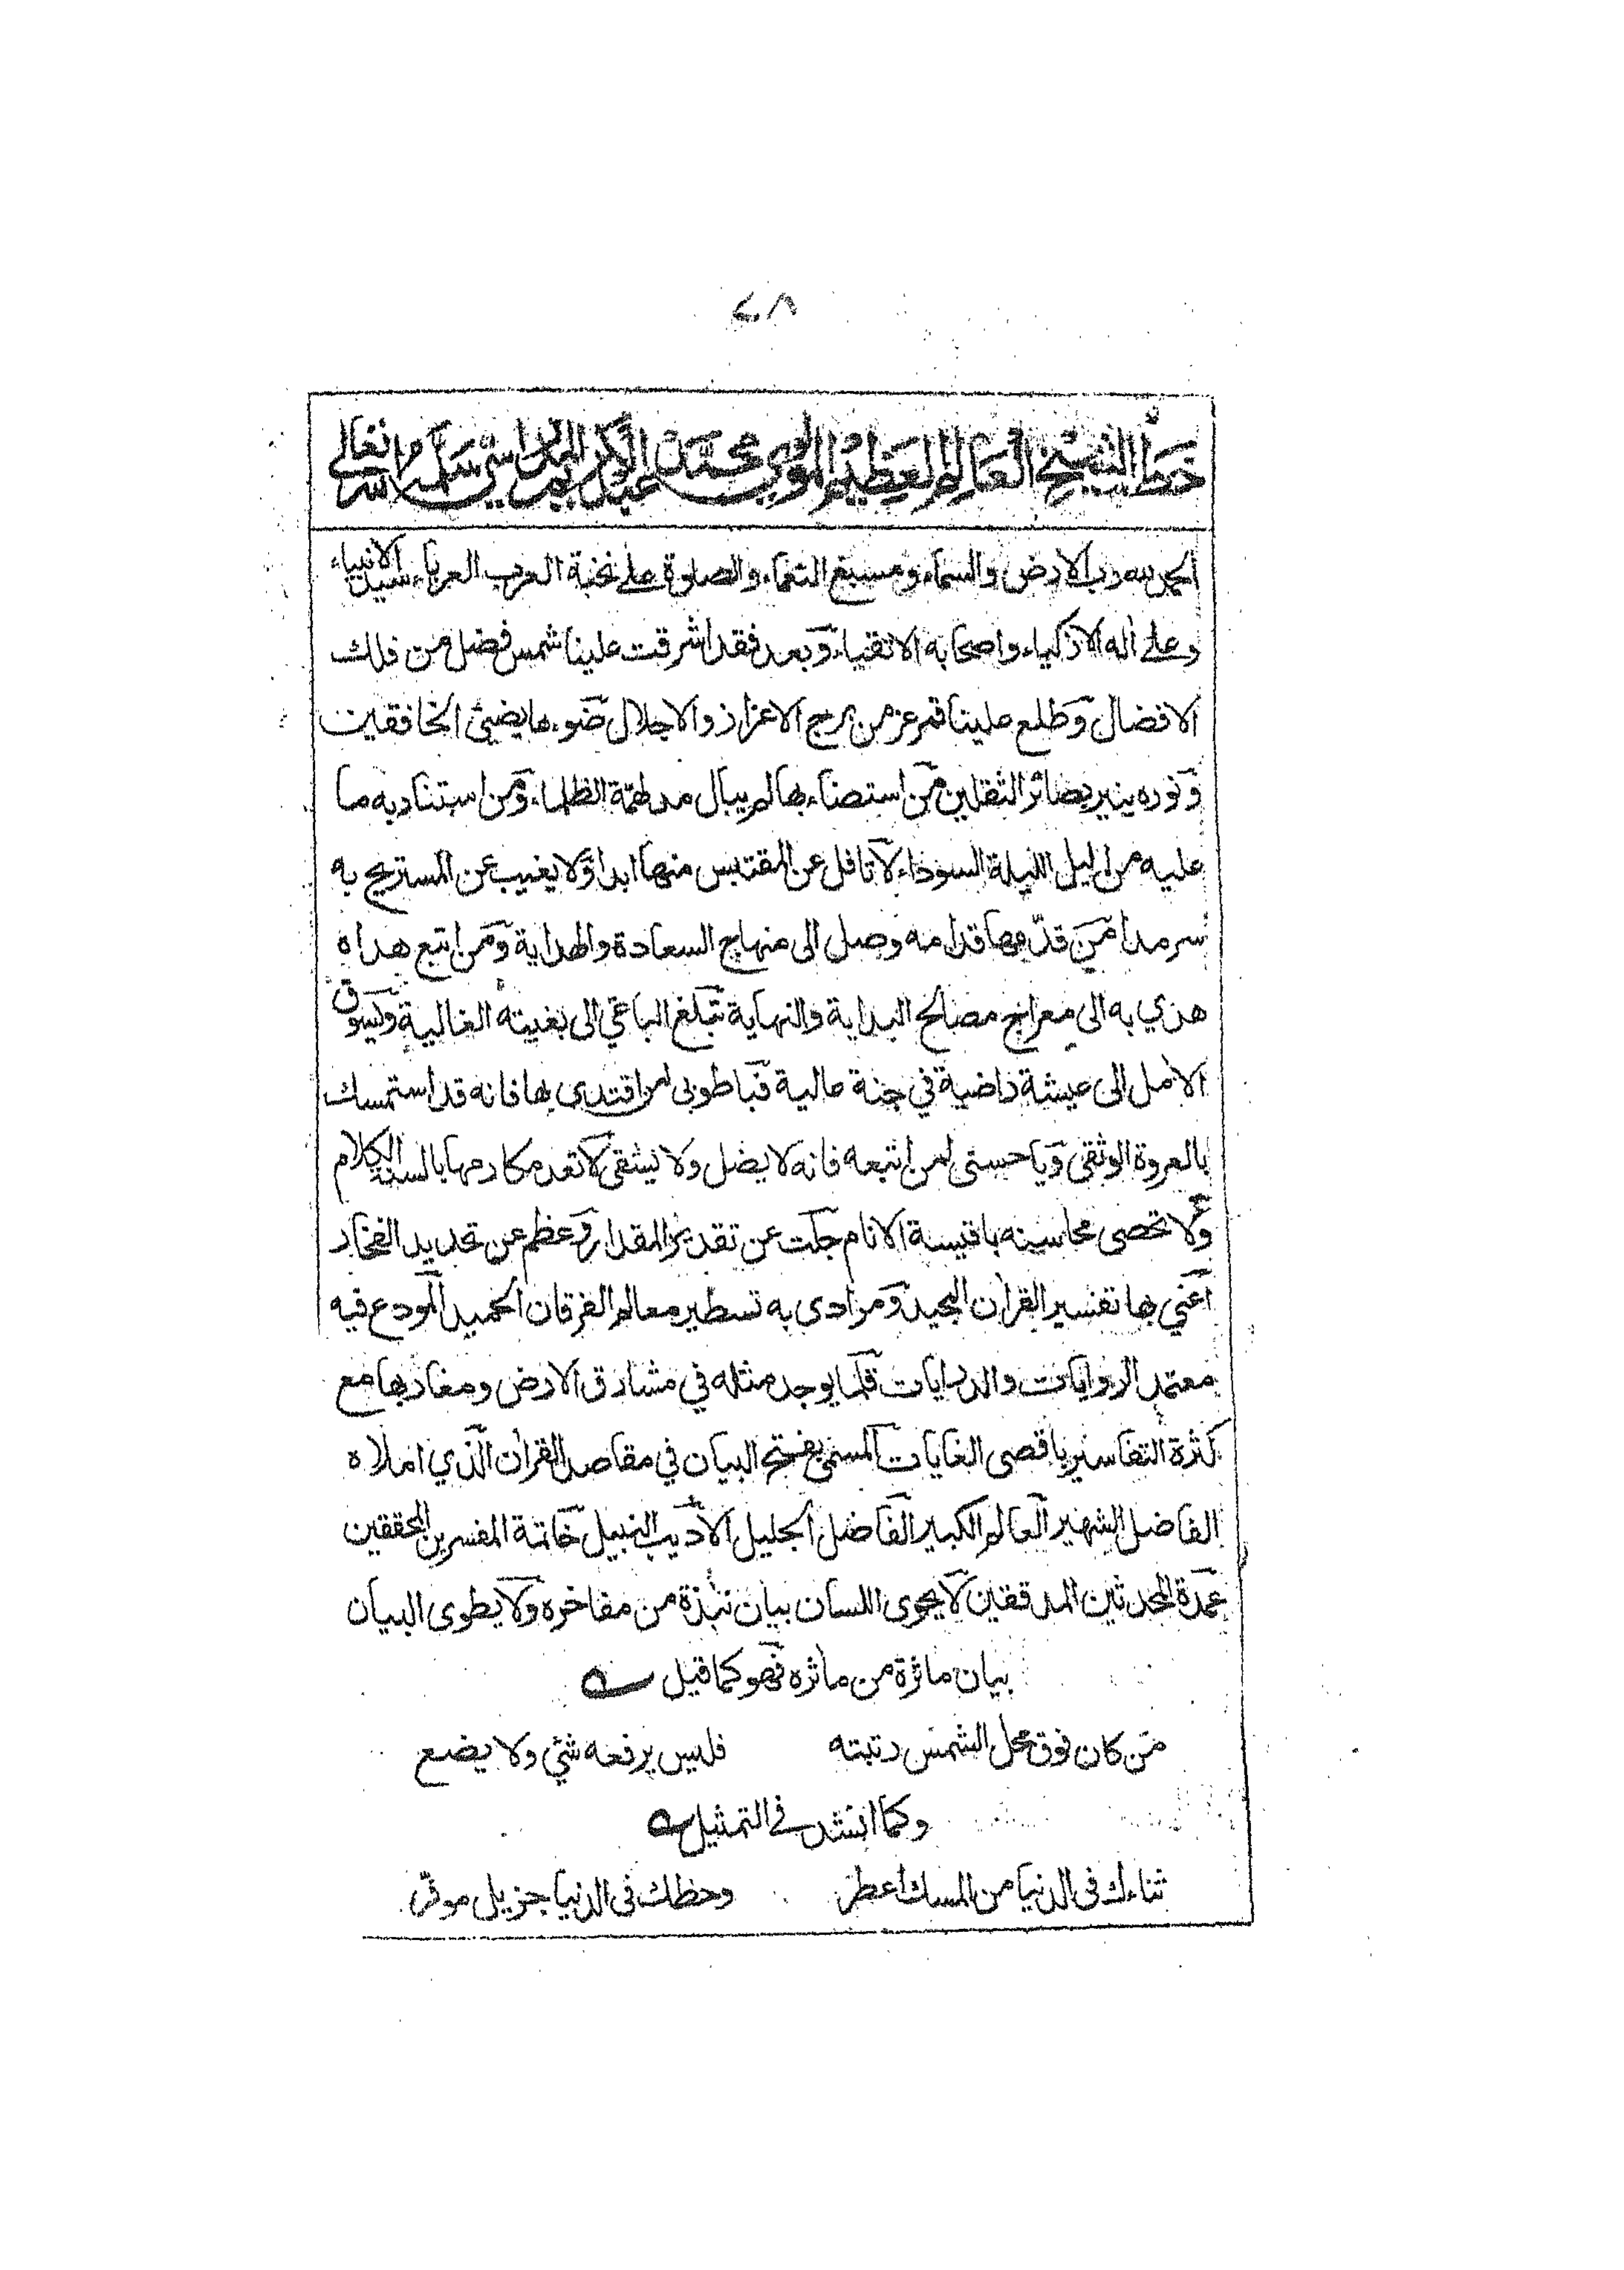 ٤٨
خط الشيخ العالم العظيم المولوي محمد عبد الكريم المدراسي سلمه الله تعالى
الحمد لله رب الارض والسماء ومسبغ النعماء والصلوة على نخبة العرب العرباء سيد الانبياء
وعلى اله الازكياء واصحابه الاتقياء وبعد فقد اشرقت علينا شمس فضل من فلك
الافضال وطلع علينا قمر عز من برج الاعزاز والاجلال ضوءها يضيئ الخافقين
ونوره ينير بصائر الثقلين من استضاء بها لم يبال مدلهمة الظلماء ومن استنار به ما
عليه من ليل الليلة السوداء لا تافل عن المقتبس منها ابدا ولا يغيب عن المستريح به
سرمدا من قدم فيها قدامه وصل الى منهاج السعادة والهداية ومن اتبع هداه
هدي به الى معراج مصالح البداية والنهاية تبلغ الباغي الى بغيته الغالية وتسوق
الامل الى عيشة راضية في جنة عالية فيا طوبى لمن اقتدى بها فانه قد استمسك
بالعروة الوثقى ويا حسنى لمن اتبعه فانه لا يضل ولا يشقى لا تعد مكارمها بالسنة الكلام
ولا تحصى محاسنه باقيسة الانام جلت عن تقدير المقدار وعظم عن تحديد الفخار
اعني بها تفسير القران المجيد ومرادي به تسطير معالم الفرقان الحميد المودع فيه
معتمد الروايات والدرايات قلما يوجد مثله في مشارق الارض ومغاربها مع
كثرة التفاسير باقصى الغايات المسمى بفتح البيان في مقاصد القران الذي املاه
الفاضل الشهير العالم الكبير الفاضل الجليل الاديب النبيل خاتمة المفسرين المحققين
عمدة المحدثين المدققين لا يحوى اللسان بيان نبذة من مفاخره ولا يطوى البيان
بيان ماثرة من ماثره فهو كما قيل
من كان فوق محل الشمس رتبته فليس يرفعه شئي ولا يضع
وكما انشد في التمثيل
ثناءك في الدنيا من المسك اعطر وحظك في الدنيا جزيل موفر